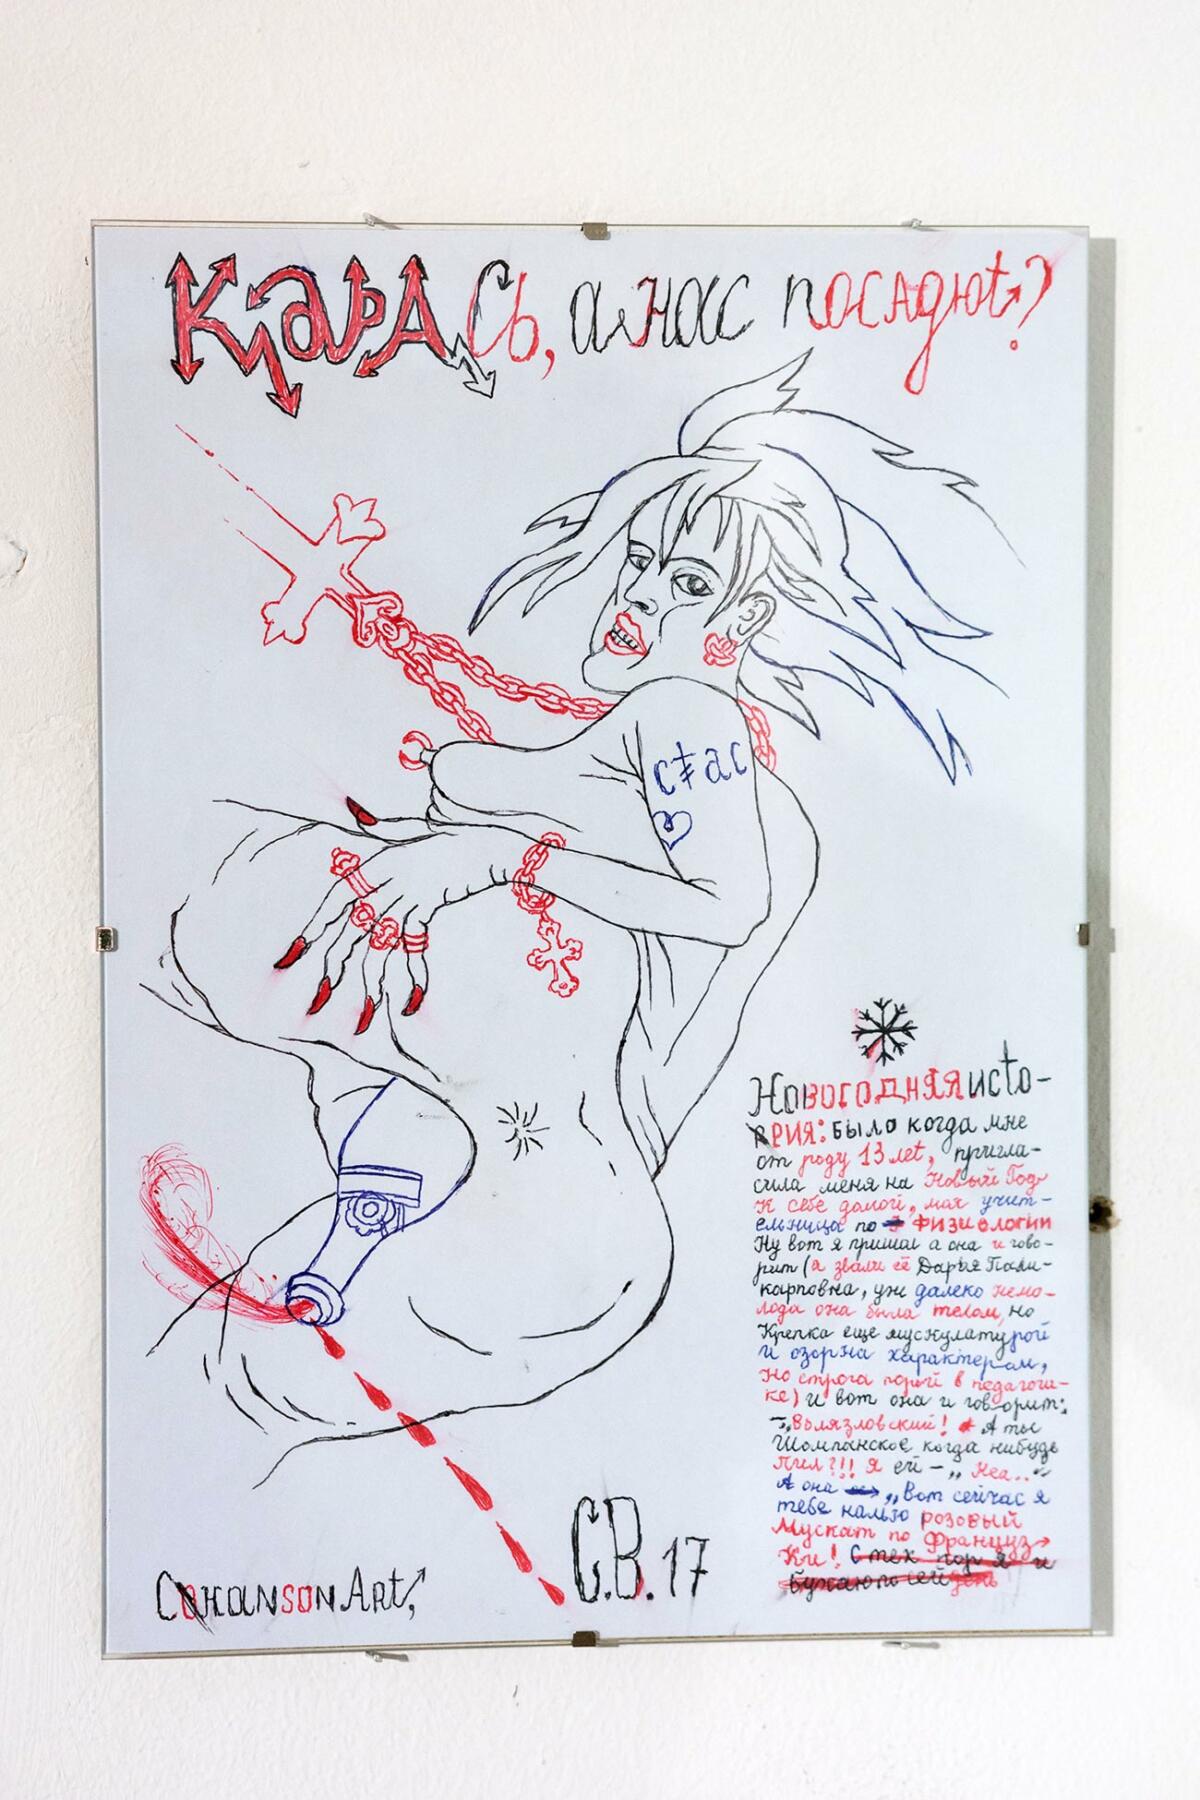 КАРАсь, а нас посадют?
стас
Новогодняя исто-
РИЯ: Было когда мне
от роду 13 лет, пригла-
сила меня на Новый Год
к себе домой, моя учит-
ельница по Физиологии
Ну вот я пришол а она и гово-
рит (а звали её Дарья Поли-
карповна, уж далеко немо-
лода она была телом, но
Крепка еще мускулатурой
и озорна характером,
но строга порой в педагоги-
ке) и вот она и говорит:
-„Волязловский! А ты
Шомпанское когда нибудь
Пил?!! Я ей - „Неа.."
А она „Вот сейчас я
тебе налью розовый
Мускат по Француз→
Ки! С тех пор я и
бухаю по сей день
СоханSON Art,
С.В. 17